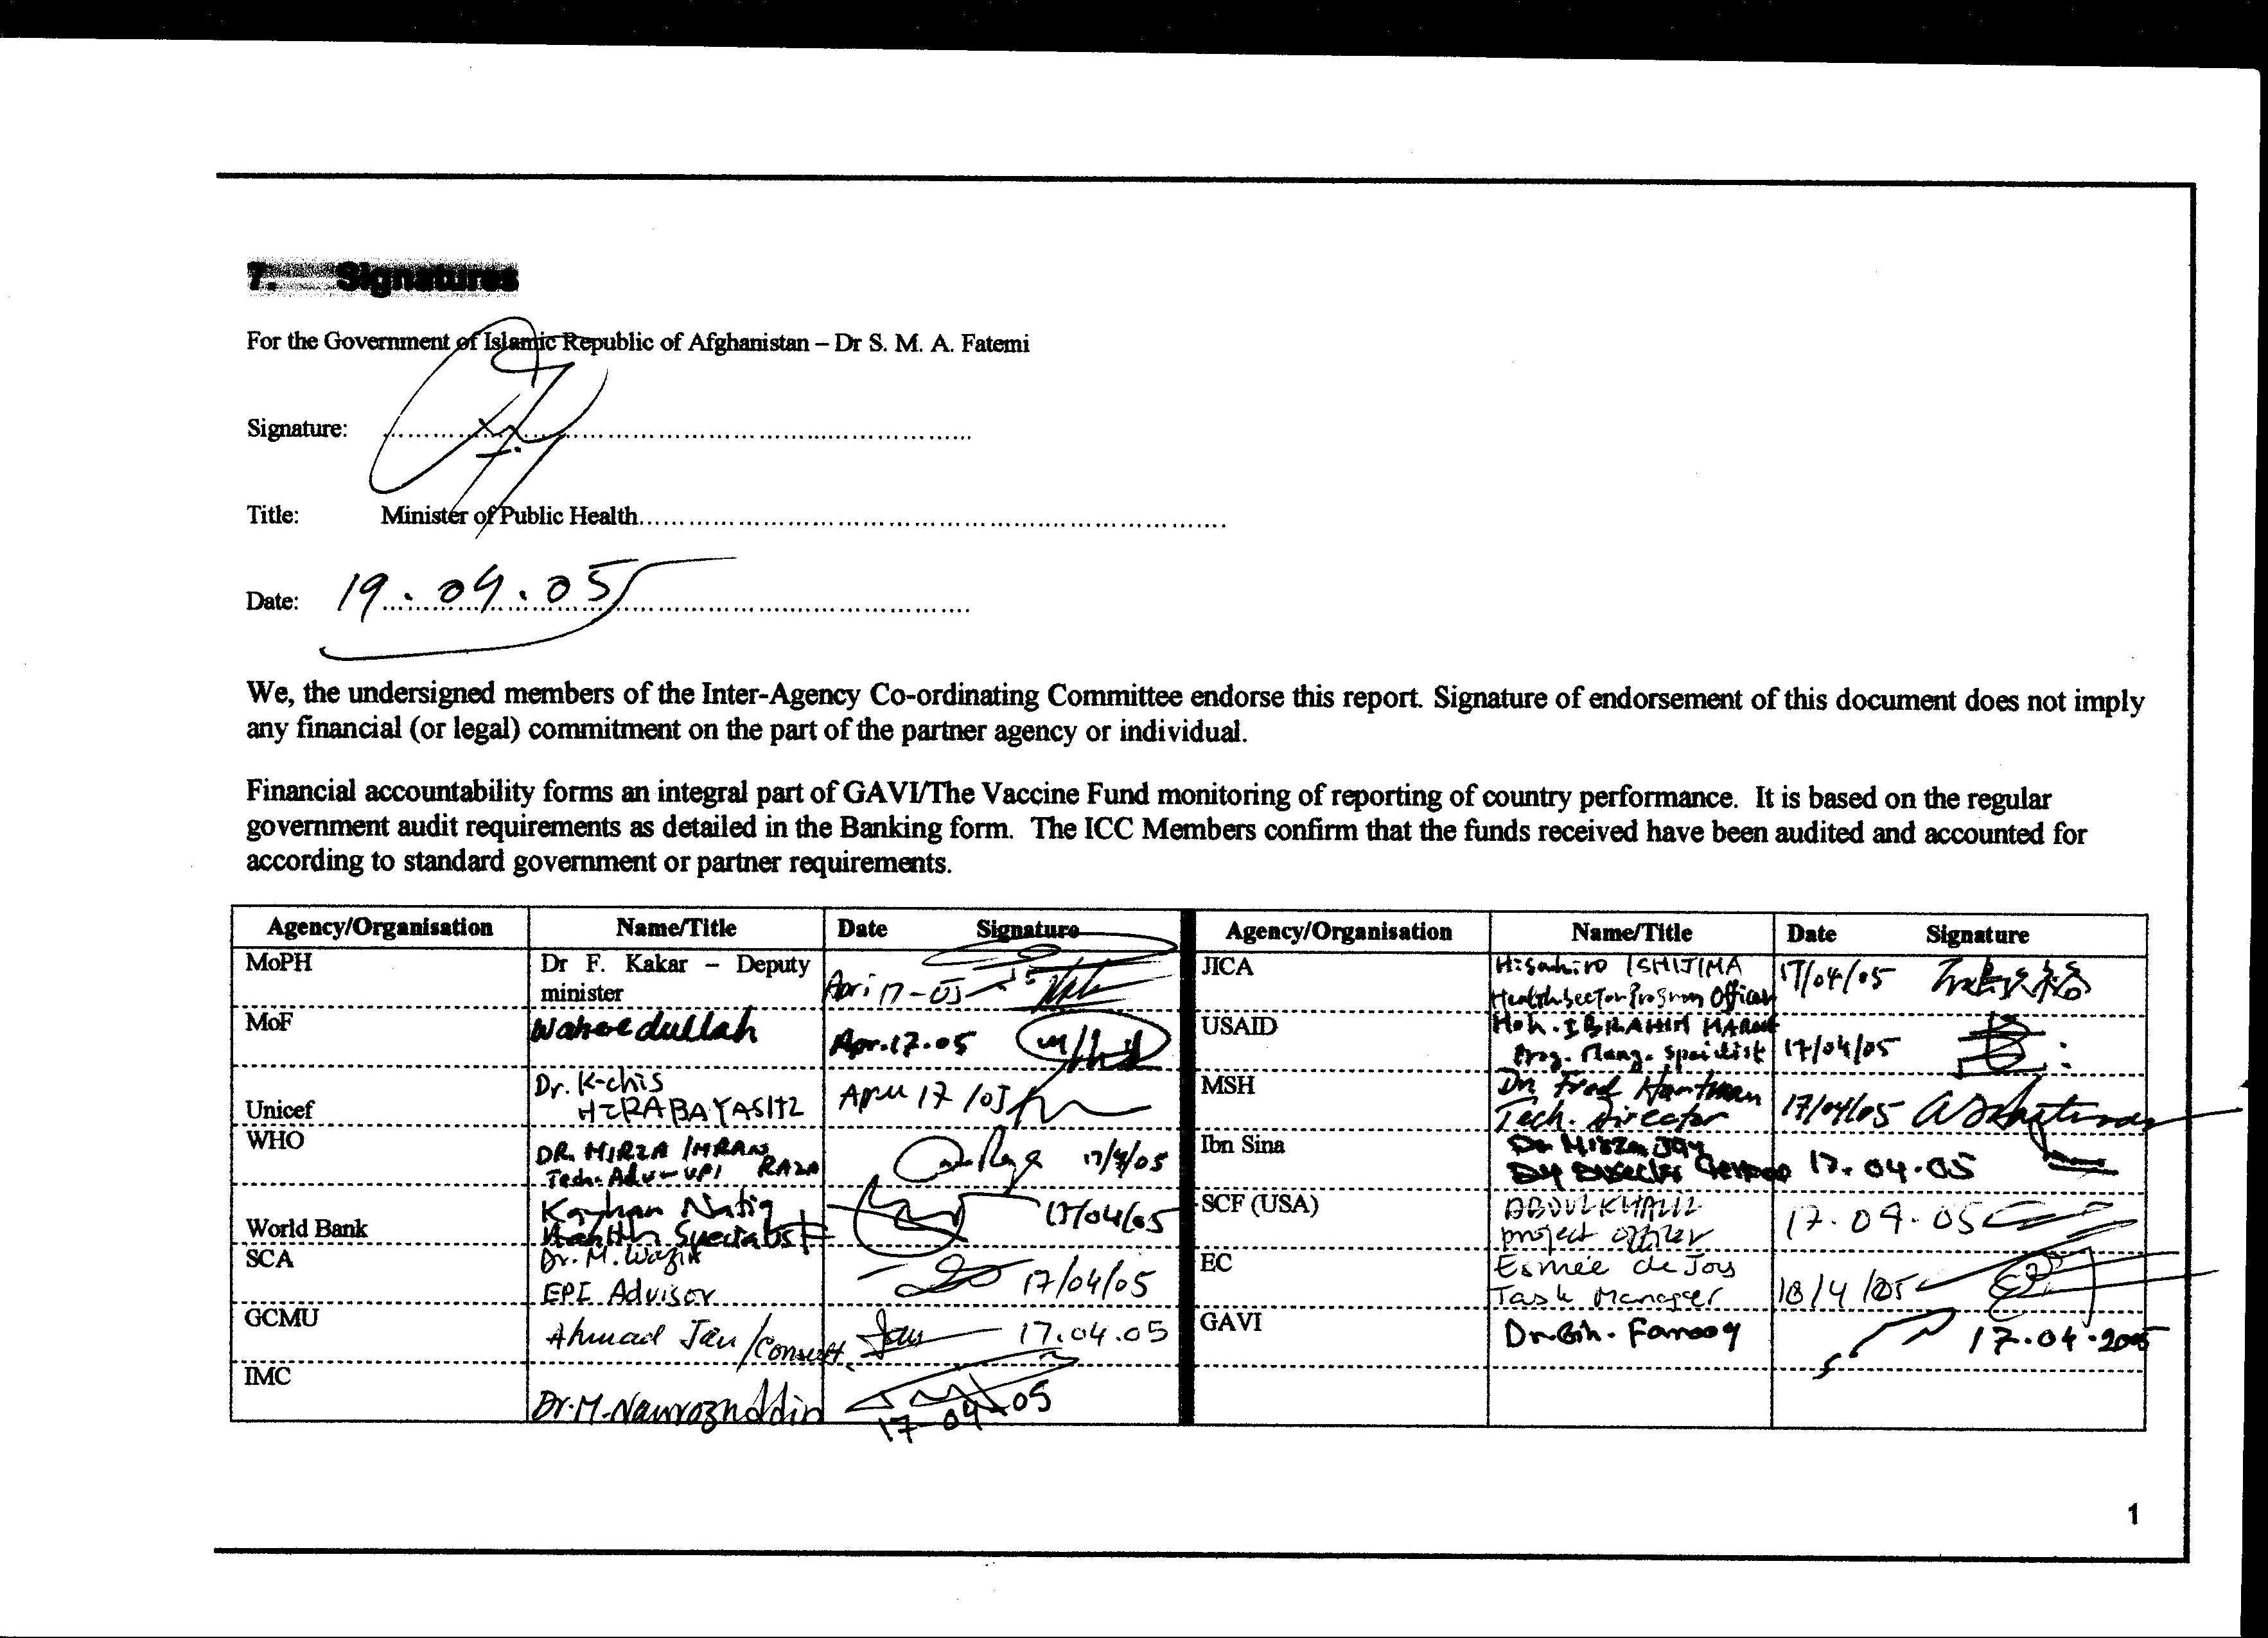 7. Signatures
For the Government of Islamic Republic of Afghanistan – Dr S. M. A. Fatemi
Signature: ........................................
Title: Minister of Public Health........................................
Date: 19.04.05
We, the undersigned members of the Inter-Agency Co-ordinating Committee endorse this report. Signature of endorsement of this document does not imply
any financial (or legal) commitment on the part of the partner agency or individual.
Financial accountability forms an integral part of GAVI/The Vaccine Fund monitoring of reporting of country performance. It is based on the regular
government audit requirements as detailed in the Banking form. The ICC Members confirm that the funds received have been audited and accounted for
according to standard government or partner requirements.
Agency/Organisation Name/Title Date Signature Agency/Organisation Name/Title Date Signature
MoPH
Dr F. Kakar – Deputy
minister
17-05
JICA
Hisahiro ISHIJIMA
Health Sector Program Officer
17/04/05
MoF
Waheedullah
Apr.17.05
USAID
IBRAHIM
17/04/05
Unicef
Dr. K-chis
April 17/05
MSH
Dr. Fred Hartman
Tech. Director
17/04/05
WHO
DR. MIRZA IMRAN
RAZA
17/4/05
Ibn Sina
Dr Mirza Jan
17.04.05
World Bank
Kayhan Natiq
Health Specialist
17/04/05
SCF (USA)
ABDUL KHALIL
project officer
17.04.05
SCA
Dr. M. Wazir
EPI Advisor
17/04/05
EC
Esmée de Jong
Task Manager
18/4/05
GCMU
Ahmad Jan/Consult.
Jan
17.04.05
GAVI
Farooq
17.04.2005
IMC
Dr.M.Nawrozuddin
17-04-05
1